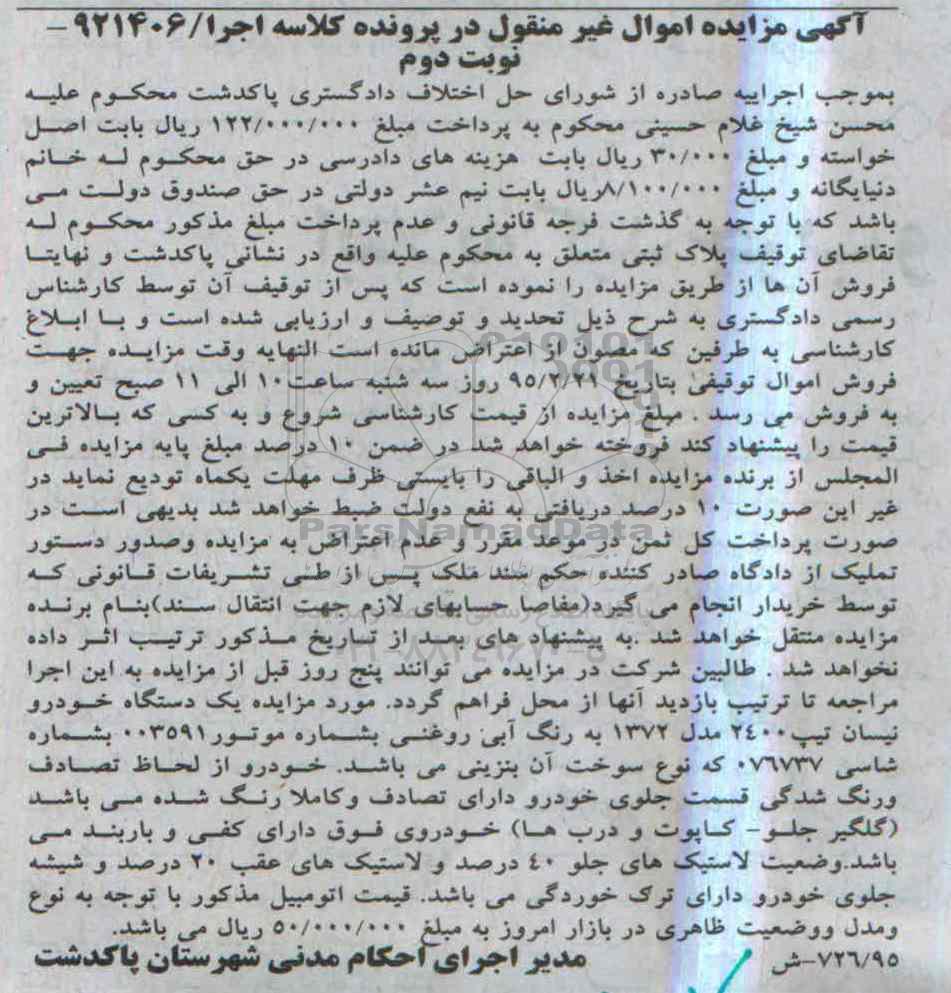 آگهی مزایده اموال غیر منقول در پرونده کلاسه اجرا/۹۲۱۴۰۶ –
نوبت دوم
بموجب اجراییه صادره از شورای حل اختلاف دادگستری پاکدشت محکوم علیه
محسن شیخ غلام حسینی محکوم به پرداخت مبلغ ۱۲۲/۰۰۰/۰۰۰ ریال بابت اصل
خواسته و مبلغ ۳۰/۰۰۰ ریال بابت هزینه های دادرسی در حق محکوم له خانم
دنیایگانه و مبلغ ۸/۱۰۰/۰۰۰ریال بابت نیم عشر دولتی در حق صندوق دولت می
باشد که با توجه به گذشت فرجه قانونی و عدم پرداخت مبلغ مذکور محکوم له
تقاضای توقیف پلاک ثبتی متعلق به محکوم علیه واقع در نشانی پاکدشت و نهایتا
فروش آن ها از طریق مزایده را نموده است که پس از توقیف آن توسط کارشناس
رسمی دادگستری به شرح ذیل تحدید و توصیف و ارزیابی شده است و با ابلاغ
کارشناسی به طرفین که مصون از اعتراض مانده است النهایه وقت مزایده جهت
فروش اموال توقیفی بتاریخ ۹۵/۲/۲۱ روز سه شنبه ساعت۱۰ الی ۱۱ صبح تعیین و
به فروش می رسد . مبلغ مزایده از قیمت کارشناسی شروع و به کسی که بالاترین
قیمت را پیشنهاد کند فروخته خواهد شد در ضمن ۱۰ درصد مبلغ پایه مزایده فی
المجلس از برنده مزایده اخذ و الباقی را بایستی ظرف مهلت یکماه تودیع نماید در
غیر این صورت ۱۰ درصد دریافتی به نفع دولت ضبط خواهد شد بدیهی است در
صورت پرداخت کل ثمن در موعد مقرر و عدم اعتراض به مزایده وصدور دستور
تملیک از دادگاه صادر کننده حکم سند ملک پس از طی تشریفات قانونی که
توسط خریدار انجام می گیرد(مفاصا حسابهای لازم جهت انتقال سند)بنام برنده
مزایده منتقل خواهد شد .به پیشنهاد های بعد از تاریخ مذکور ترتیب اثر داده
نخواهد شد . طالبین شرکت در مزایده می توانند پنج روز قبل از مزایده به این اجرا
مراجعه تا ترتیب بازدید آنها از محل فراهم گردد. مورد مزایده یک دستگاه خودرو
نیسان تیپ۲۴۰۰ مدل ۱۳۷۲ به رنگ آبی روغنی بشماره موتور۰۰۳۵۹۱ بشماره
شاسی ۰۷۶۷۳۷ که نوع سوخت آن بنزینی می باشد. خودرو از لحاظ تصادف
ورنگ شدگی قسمت جلوی خودرو دارای تصادف وکاملا رنگ شده می باشد
(گلگیر جلو- کاپوت و درب ها) خودروی فوق دارای کفی و باربند می
باشد.وضعیت لاستیک های جلو ۴۰ درصد و لاستیک های عقب ۲۰ درصد و شیشه
جلوی خودرو دارای ترک خوردگی می باشد. قیمت اتومبیل مذکور با توجه به نوع
ومدل ووضعیت ظاهری در بازار امروز به مبلغ ۵۰/۰۰۰/۰۰۰ ریال می باشد.
۷۲۶/۹۵-ش مدیر اجرای احکام مدنی شهرستان پاکدشت
ParsNamadData